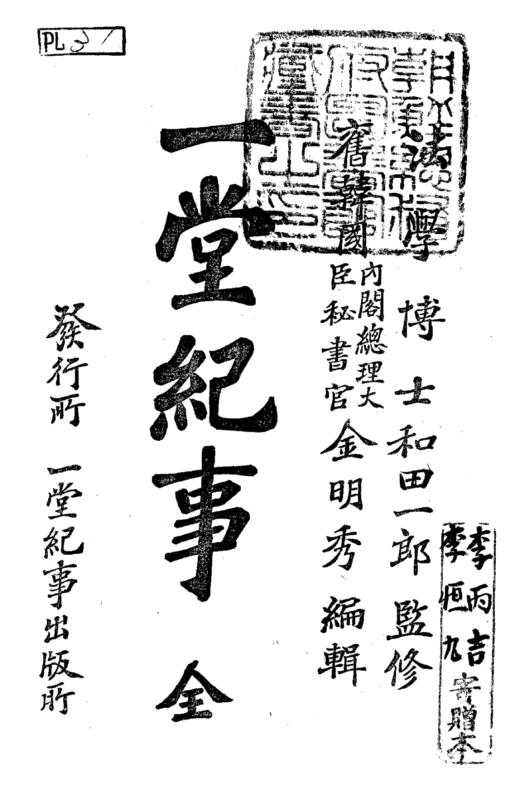 PL 31
法學博士和田一郎監修
舊韓國內閣總理大臣秘書官金明秀編輯
一堂紀事 全
發行所 一堂紀事出版所
李丙吉
李恒九
寄贈本